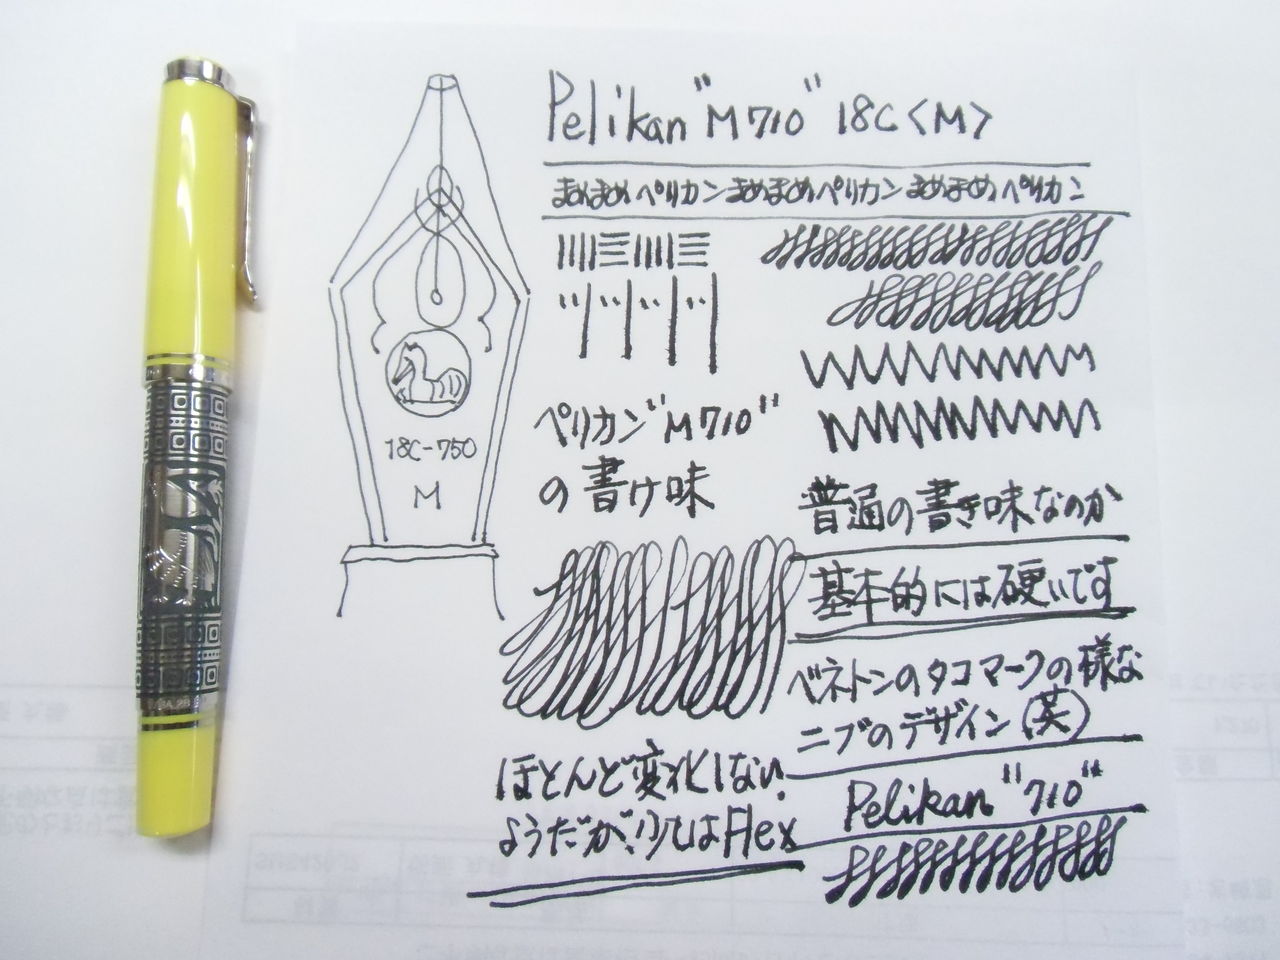 Pelikan "M710" 18C <M>
まめまめペリカンまめまめペリカンまめまめペリカン
18C-750
M
ペリカン"M710"
の書け味
普通の書き味なのか
基本的には硬いです
ベネトンのタコマークの様な
ニブのデザイン(笑)
ほとんど変化しない
ようだが少しはFlex
Pelikan "710"